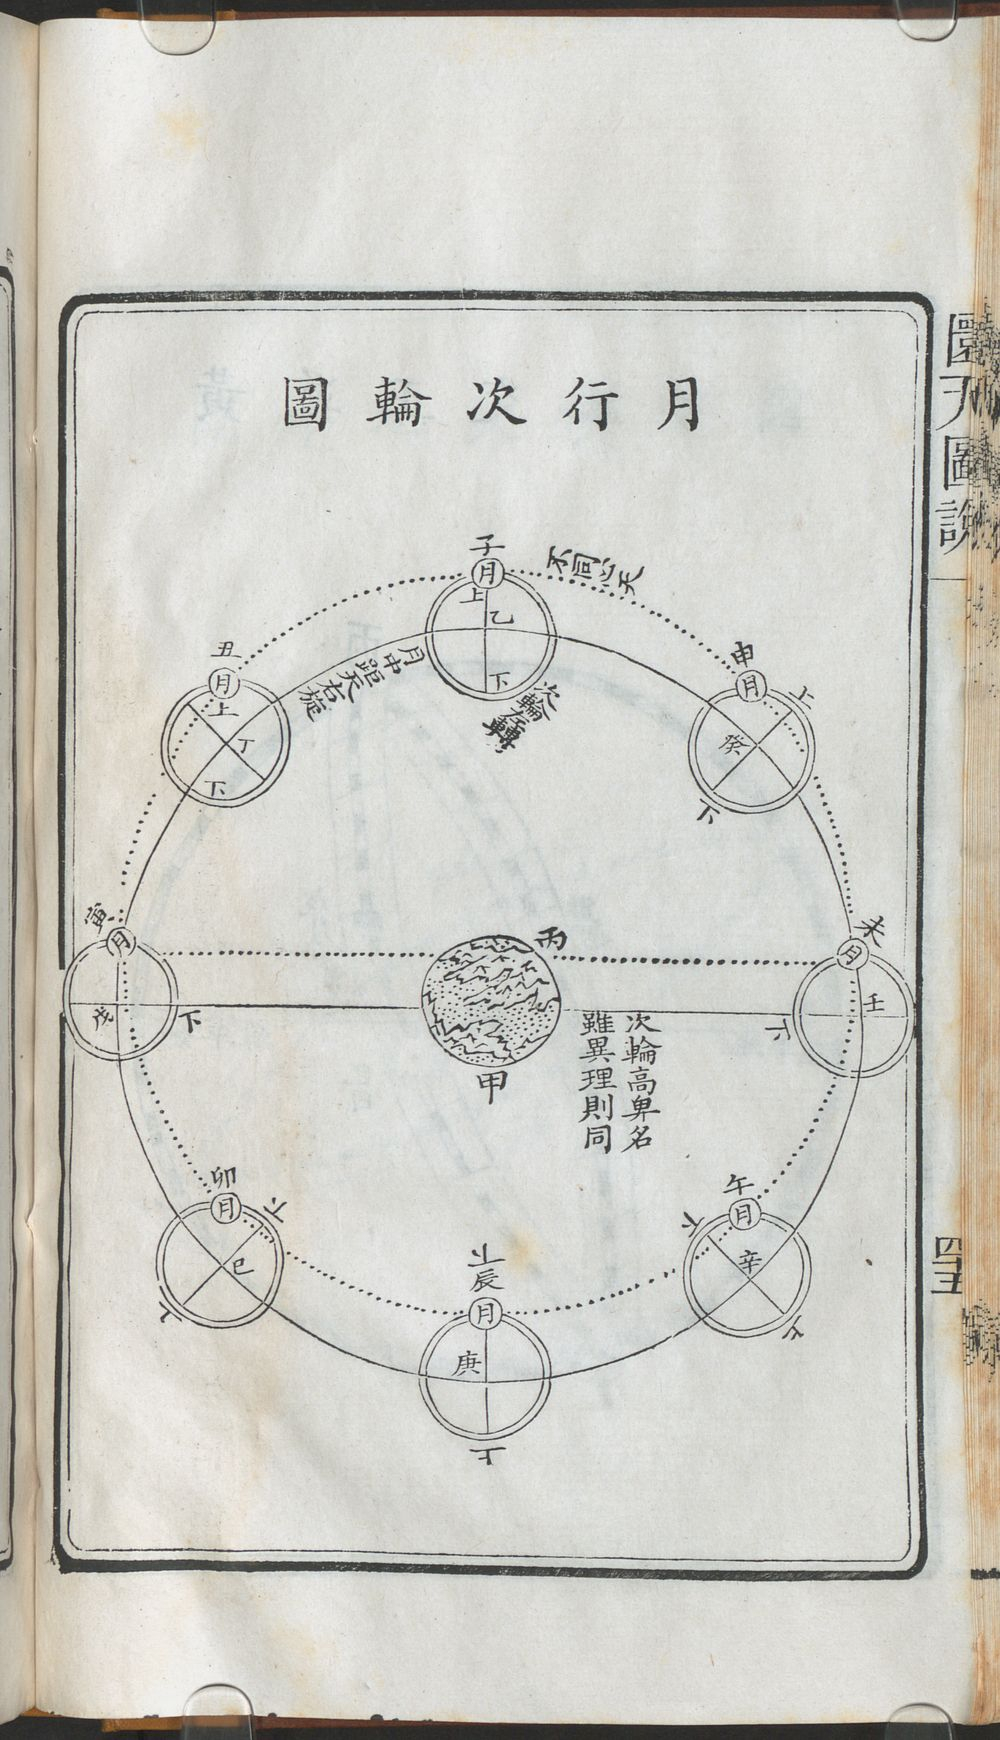 月行次輪圖
圜天圖說
四十五
子
月
上
乙
下
不同心天
月中距天右旋
次輪左轉
丑
月
上
丁
下
申
月
上
癸
下
寅
月
戊
下
丙
甲
未
月
壬
下
次輪高卑名
雖異理則同
卯
月
下
己
上
上
辰
月
庚
下
午
月
下
辛
上